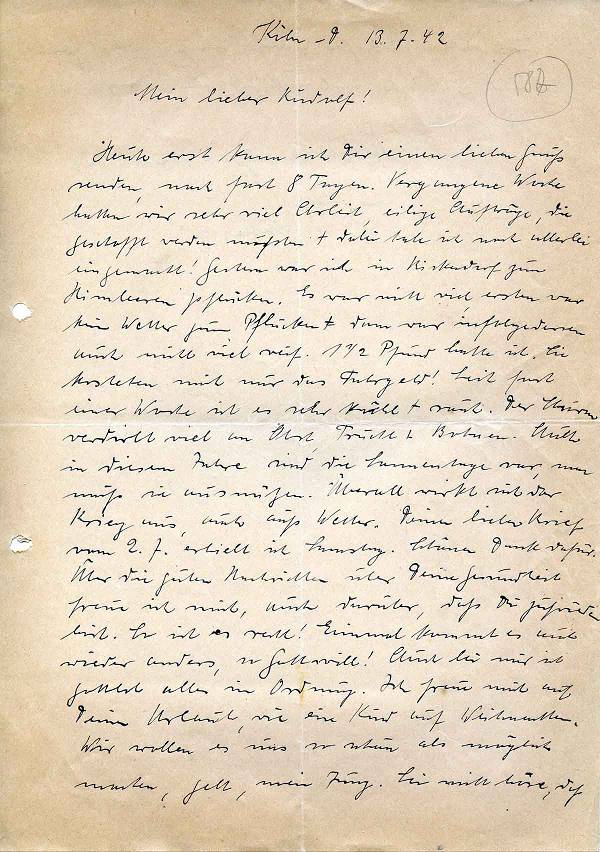 Köln-D. 13.7.42
Mein lieber Rudolf!
Heute erst kann ich Dir einen lieben Gruß
senden, nach fast 8 Tagen. Vergangene Woche
hatten wir sehr viel Arbeit, eilige Aufträge, die
geschafft werden mußten + dabei habe ich noch allerlei
eingemacht! Gestern war ich in zum
Himbeeren pflücken. Es war nicht viel, erstens war
kein Wetter zum Pflücken + dann war infolgedessen
auch nicht viel reif. 1 1/2 Pfund hatte ich. Sie
kosteten mich nur das Fahrgeld! Seit fast
einer Woche ist es sehr kühl + naß. Der Sturm
verdirbt viel an Obst, Frucht + Bohnen. Auch
in diesem Jahre sind die Sonnentage rar, man
muß sie ausnützen. Überall wirkt sich der
Krieg aus, auch aufs Wetter. Deinen lieben Brief
vom 2.7. erhielt ich Samstag. Schönen Dank dafür.
Über die guten Nachrichten über Deine Gesundheit
freue ich mich, auch darüber, daß Du zufrieden
bist. So ist es recht! Einmal kommt es auch
wieder anders, so Gott will! Auch bei mir ist
gottlob alles in Ordnung. Ich freue mich auf
Deinen Urlaub, wie ein Kind auf Weihnachten.
Wir wollen es uns so schön als möglich
machen, gelt, mein Jung. Sei nicht böse, daß